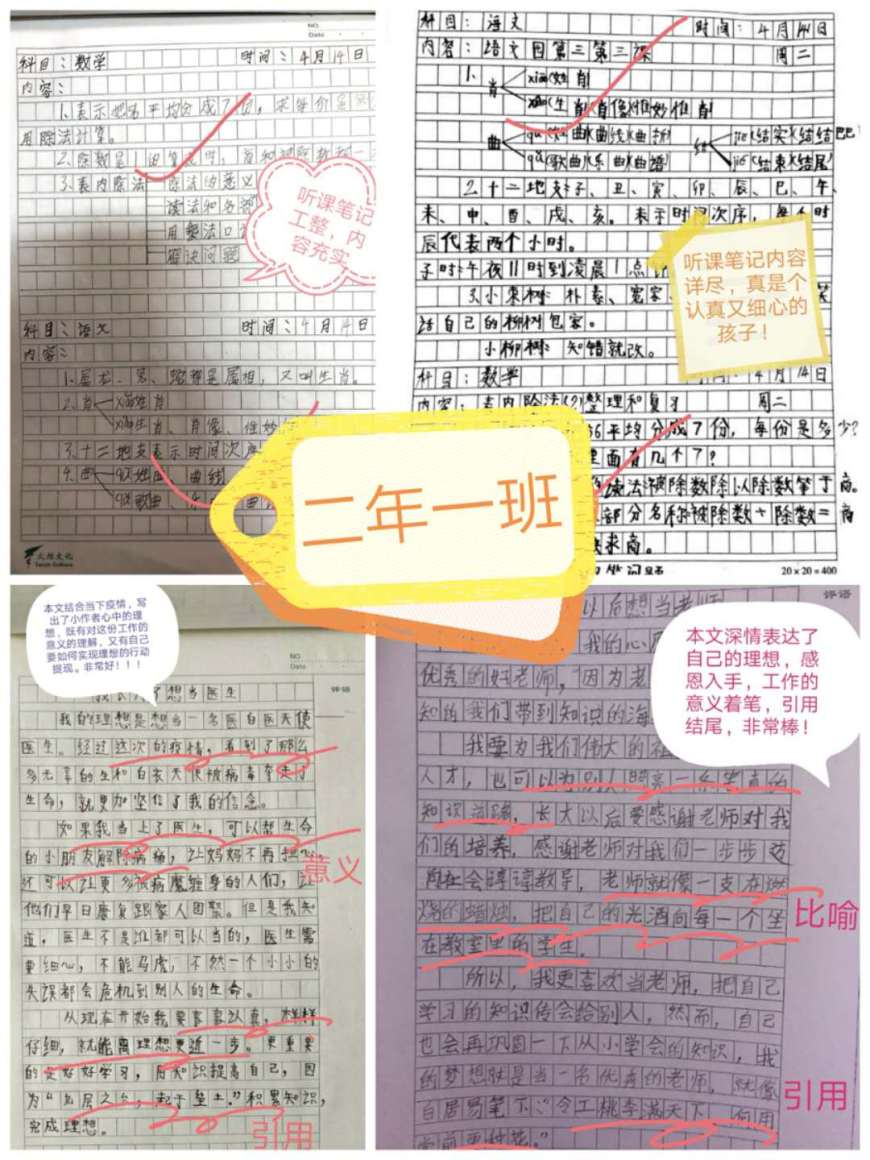 NO.
Date
科目：数学 时间：4月14日
内容：
用除法计算。
3.表内除法 除法的意义
读法和各部
用乘法口
解决问题
听课笔记
工整，内
容充实
科目：语文 时间：4月14日
内容：
又叫生肖。
2.肖
肖像、惟妙
3.十二地支表示时间次序
4.曲 曲线
科目：语文 时间：4月14日
内容：语文园第三第三课 周二
1.肖 xiào(生肖)(肖像)(惟妙惟肖)
曲 qū(弯曲)(曲线)(曲折) 结 jiē(结实)(结结巴巴)
qǔ(歌曲)(乐曲)(曲谱) jié(结束)(结尾)
2.十二地支子、丑、寅、卯、辰、巳、午、
未、申、酉、戌、亥。表示时间次序，每个时
辰代表两个小时。
子时：午夜11时到凌晨1点
3.小枣树：朴素、宽容、
话自己的柳树包容。
小柳树：知错就改。
听课笔记内容
详尽，真是个
认真又细心的
孩子！
科目：数学 时间：4月14日
内容：表内除法(2)整理和复习 周二
56平均分成7份，每份是多少？
里面有几个7？
读法：被除数除以除数等于商。
部分名称：被除数÷除数=商
求商。
20×20=400
二年一班
本文结合当下疫情，写
出了小作者心中的理
想，既有对这份工作的
意义的理解，又有自己
要如何实现理想的行动
提现。非常好！！！
NO.
Date
评语
想当医生
我的理想是想当一名医白医天使
医生。经过这次的疫情，看到了那么
多无辜的生和白衣天使被病毒夺走了
生命，就更加坚信了我的信念。
如果我当上了医生，可以帮生命
的小朋友解除病痛，让妈妈不再
还可以让更多被病魔缠身的人们，让
他们早日康复跟家人团聚。但是我知
道，医生不是谁都可以当的，医生需
要细心，不能马虎，不然一个小小的
失误都会危机到别人的生命。
从现在开始我要事事认真，样样
仔细，就能离理想更近一步。更重要
的是好好学习，用知识提高自己，因
为“九层之台，起于垒土。”积累知识，
完成理想。
意义
引用
评语
以后想当老师
我的心愿
优秀的好老师，因为老
知的我们带到知识的海
我要为我们伟大的祖
人才，也可以为别人照亮一条宽直的
知识道路，长大以后要感谢老师对我
们的培养，感谢老师对我们一步步
谆谆教导，老师就像一支在燃
烧的蜡烛，把自己的光洒向每一个坐
在教室里的学生。
所以，我更喜欢当老师，把自己
学习的知识传会给别人，然而，自己
也会再巩固一下从小学会的知识，我
的梦想就是当一名优秀的老师，就像
白居易笔下：“令公桃李满天下，何用
堂前更种花。”
本文深情表达了
自己的理想，感
恩入手，工作的
意义着笔，引用
结尾，非常棒！
比喻
引用